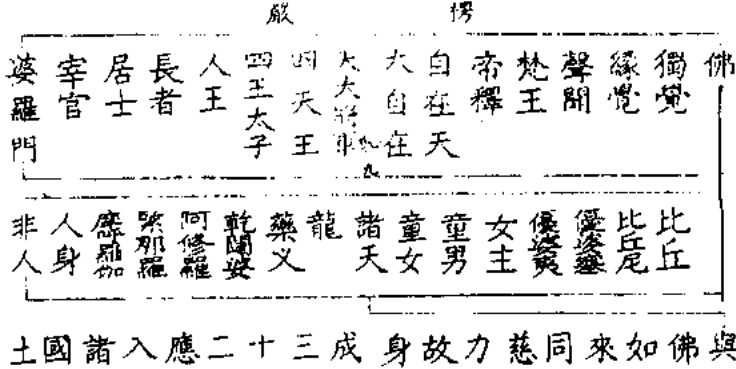 楞嚴
佛 獨覺 緣覺 聲聞 梵王 帝釋 自在天 大自在 天大將軍 四天王 四王太子 人王 長者 居士 宰官 婆羅門
比丘 比丘尼 優婆塞 優婆夷 女主 童男 童女 諸天 龍 藥叉 乾闥婆 阿修羅 緊那羅 摩羅伽 人身 非人
與佛如來同慈力故身成三十二應入諸國土